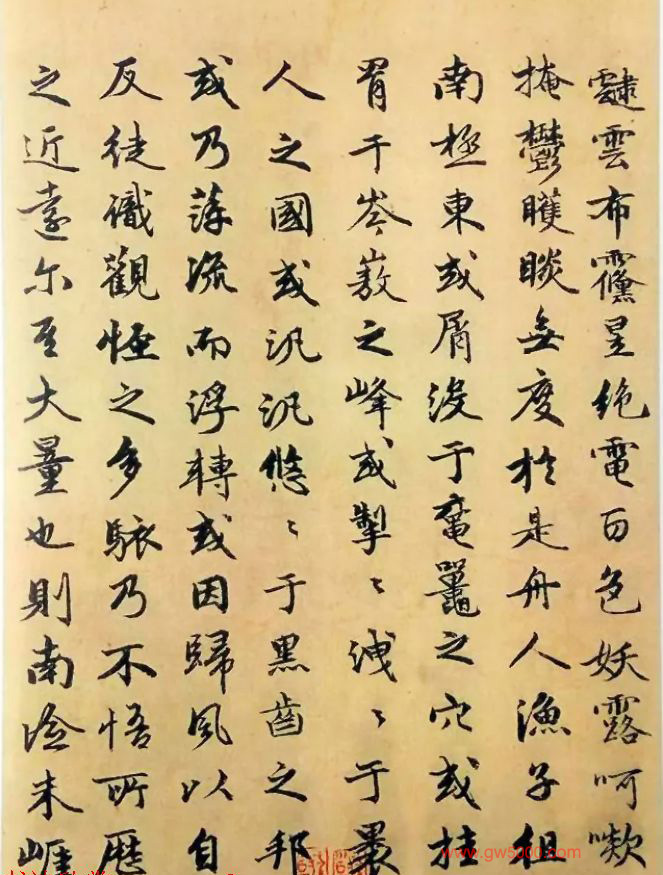 靆雲布䨴昱絶電百色妖露呵㰲
掩鬱矆睒無度於是舟人漁子徂
南極東或屑没于黿鼉之穴或挂
罥于岑嶅之峰或掣〻洩〻于裸
人之國或汎汎悠〻于黑齒之邦
或乃萍流而浮轉或因歸風以自
反徒識觀怪之多駭乃不悟所歷
之近遠尔其大量也則南澰朱崖
www.gw5000.com